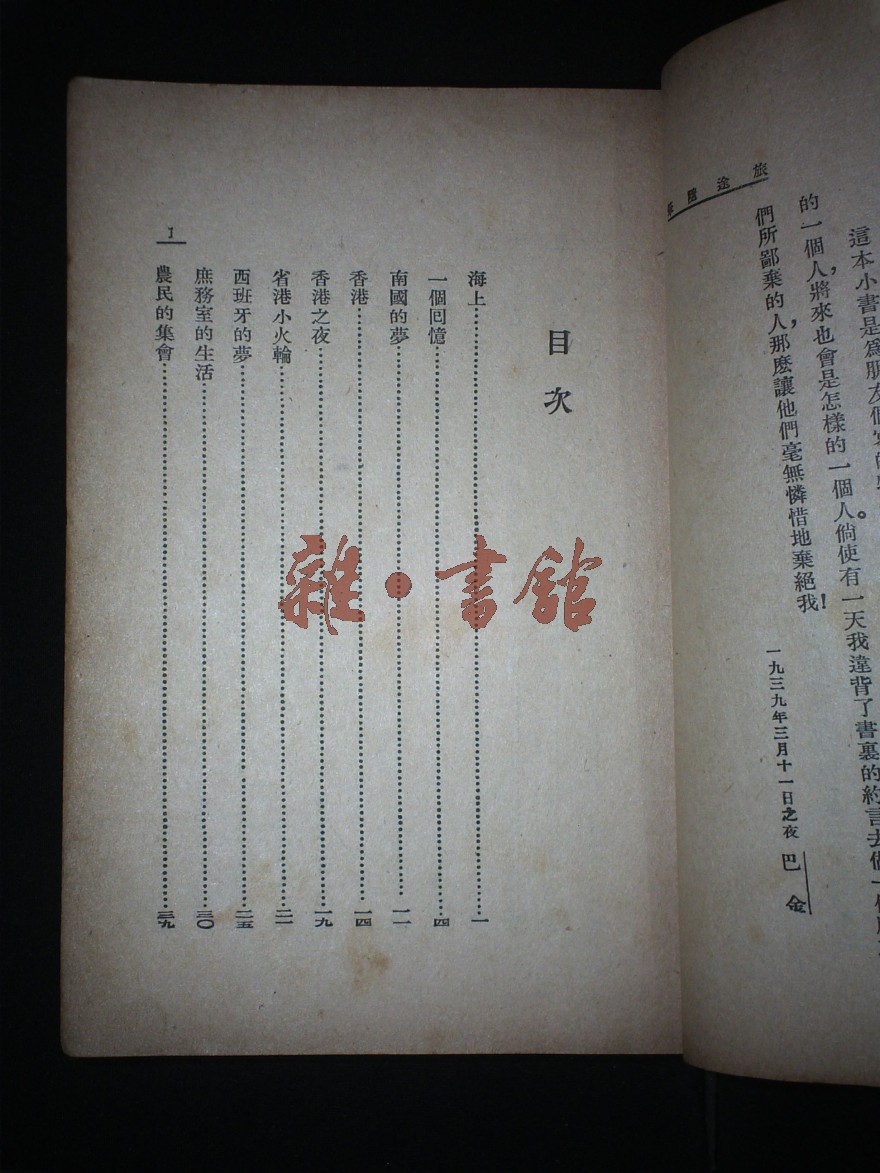 旅途隨筆
這本小書是爲朋友個
的一個人，將來也會是怎樣的一個人。倘使有一天我違背了書裏的約言去做一個
們所鄙棄的人，那麼讓他們毫無憐惜地棄絕我！
一九三九年三月十一日之夜 巴金
目次
海上……一
一個囘憶……四
南國的夢……一一
香港……一四
香港之夜……一九
省港小火輪……二一
西班牙的夢……二五
庶務室的生活……三〇
農民的集會……三九
1
雜·書館